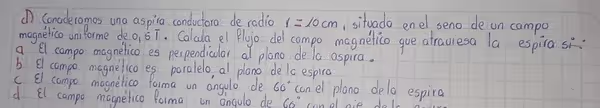 1) Consideremos una aspira conductora de radio r=10cm, situado en el seno de un campo
magnético uniforme de 0,6T. Calcula el flujo del campo magnético que atraviesa la espira si:
a El campo magnético es perpendicular al plano de la aspira.
b El campo magnético es paralelo, al plano de la espira
c El campo magnético forma un angulo de 60° con el plano de la espira
d El campo magnético forma un angulo de 60° con el eje de la